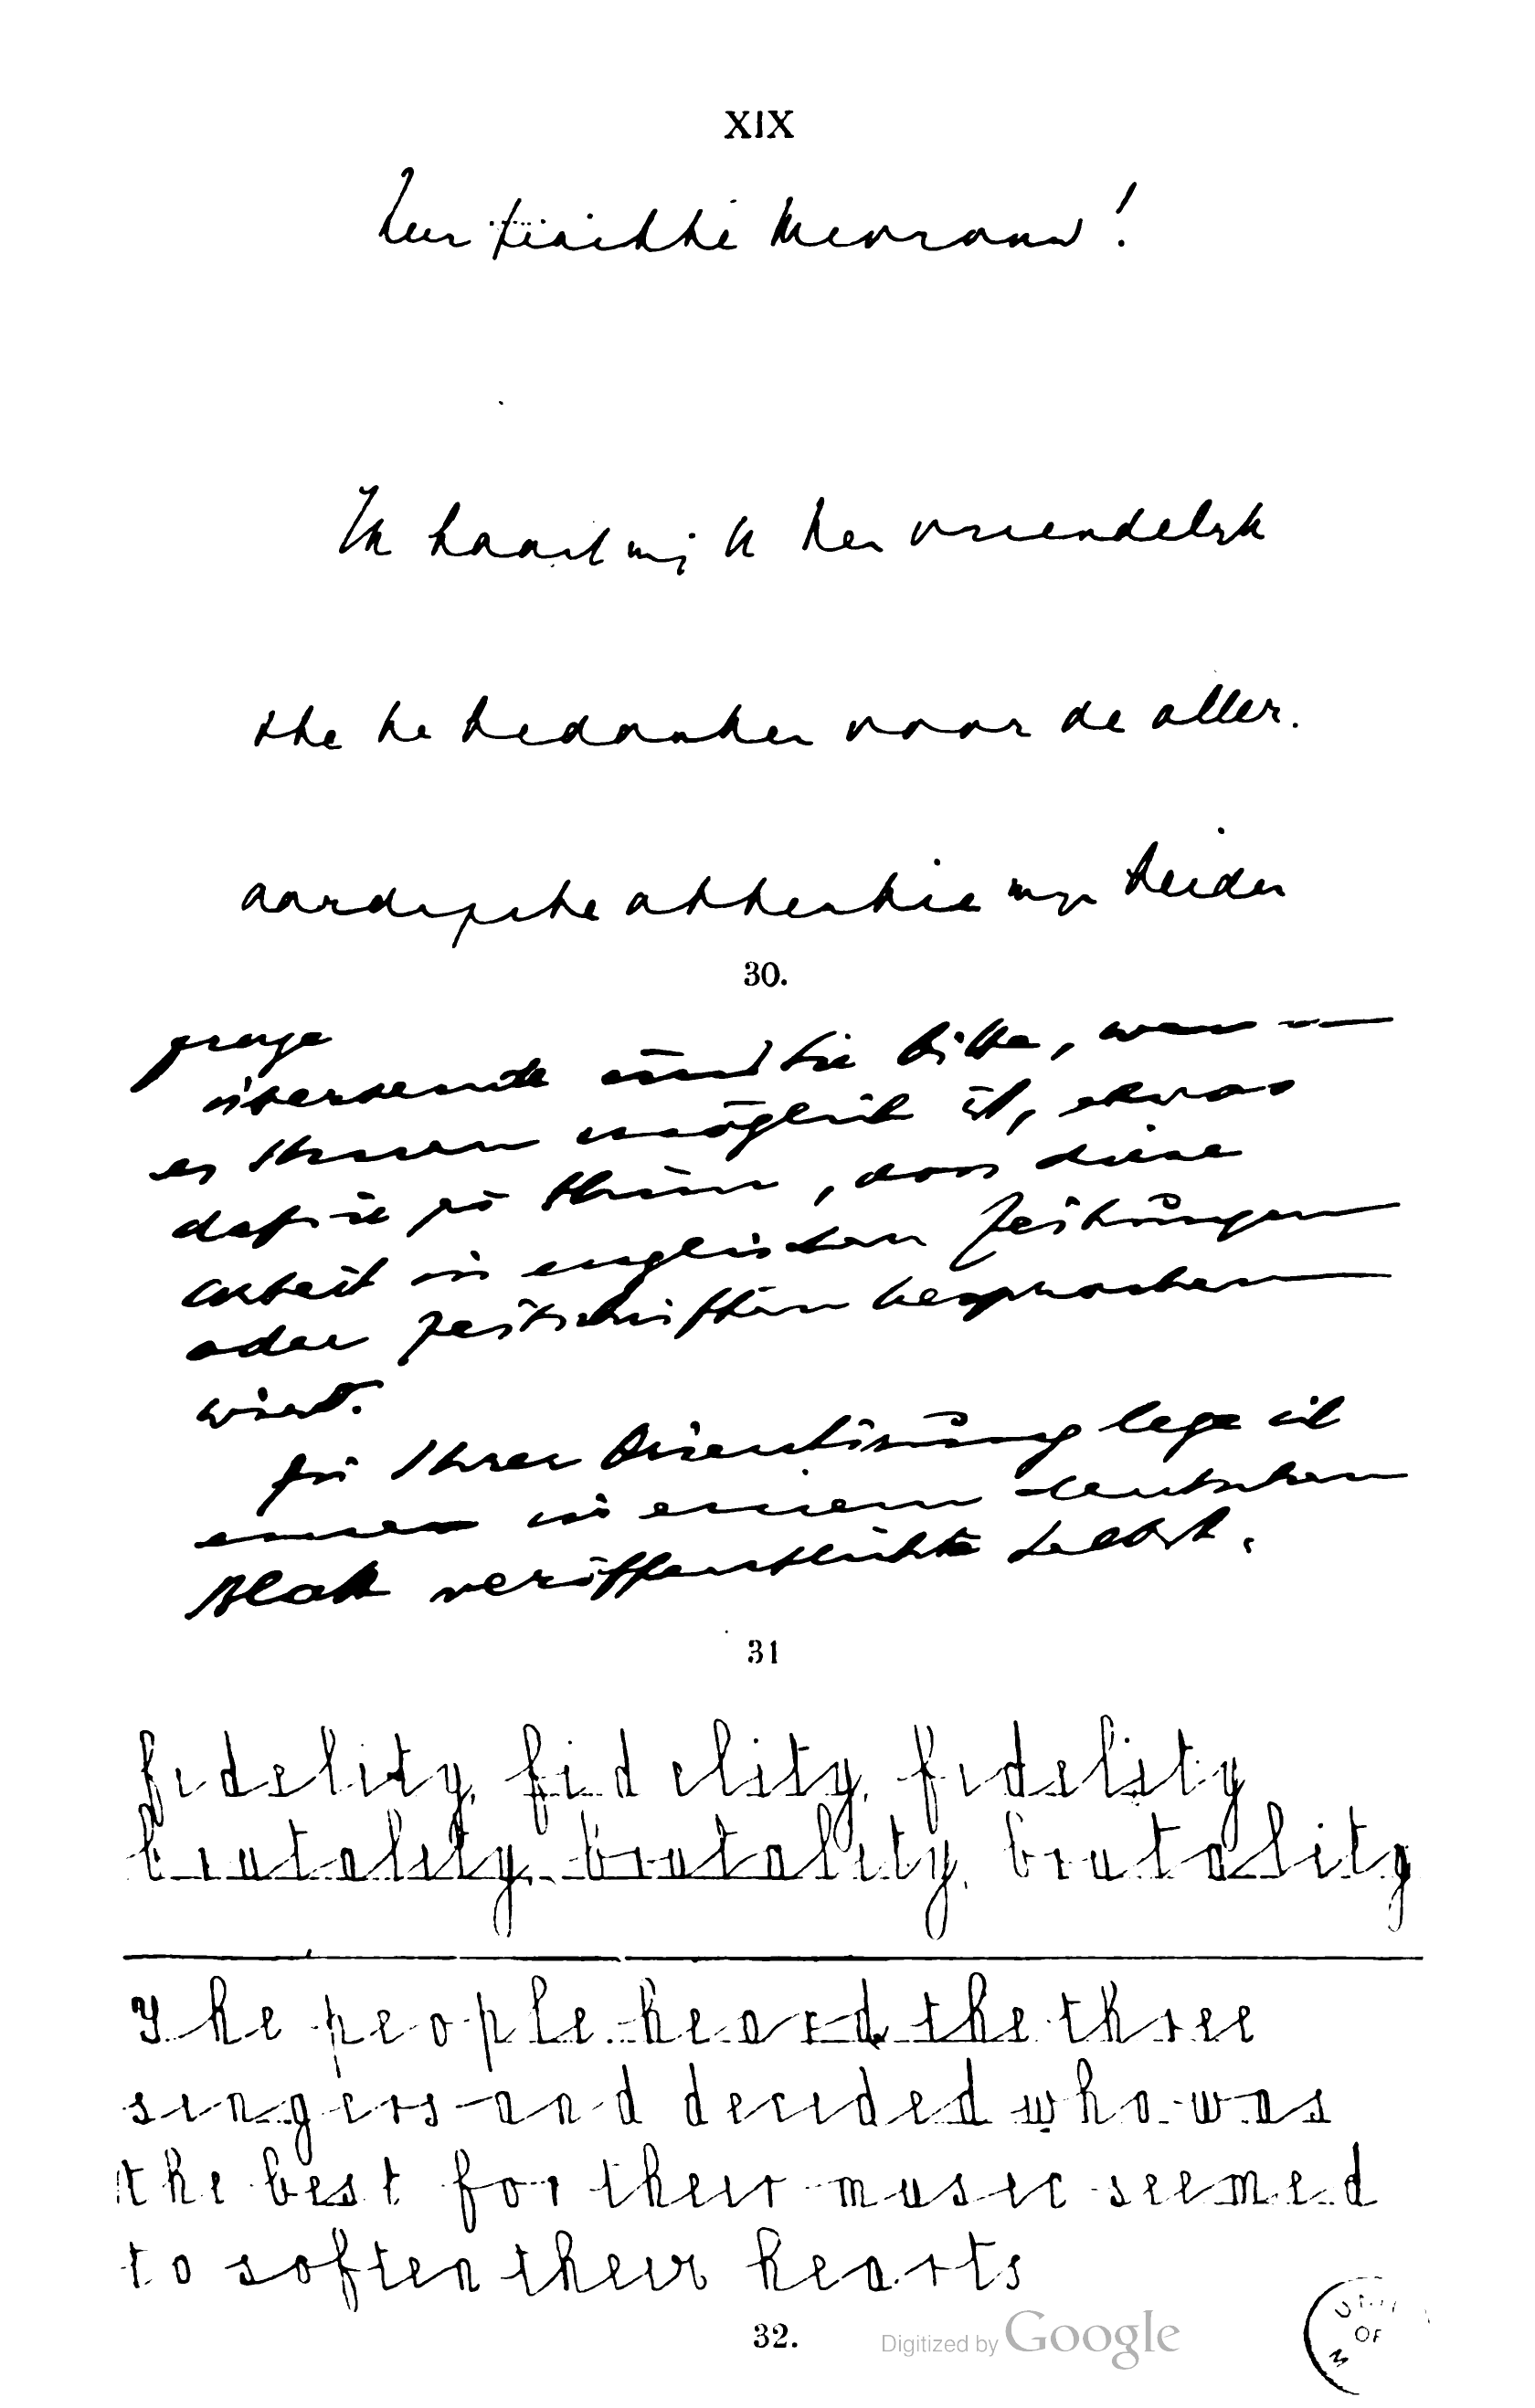 XIX
Zeer geachte Mevrouw!
Ik haast mij U zeer vriendelijk
te bedanken voor de aller.
aardigste attentie mijn beider
30.
übersende und Sie bitte, wenn
es Ihnen möglich ist, etwas
dafür zu thun, dass diese
Arbeit in englischen Zeitungen
oder Zeitschriften besprochen
wird.
Zu Ihrer Orientirung lege ich
einen in einem deutschen
Blatt veröffentlichte selbst.
31
fidelity, fidelity, fidelity
brutality, brutality, brutality
The people heard the three
singers and decided who was
the best for their music seemed
to soften their hearts
32.
Digitized by Google
OF